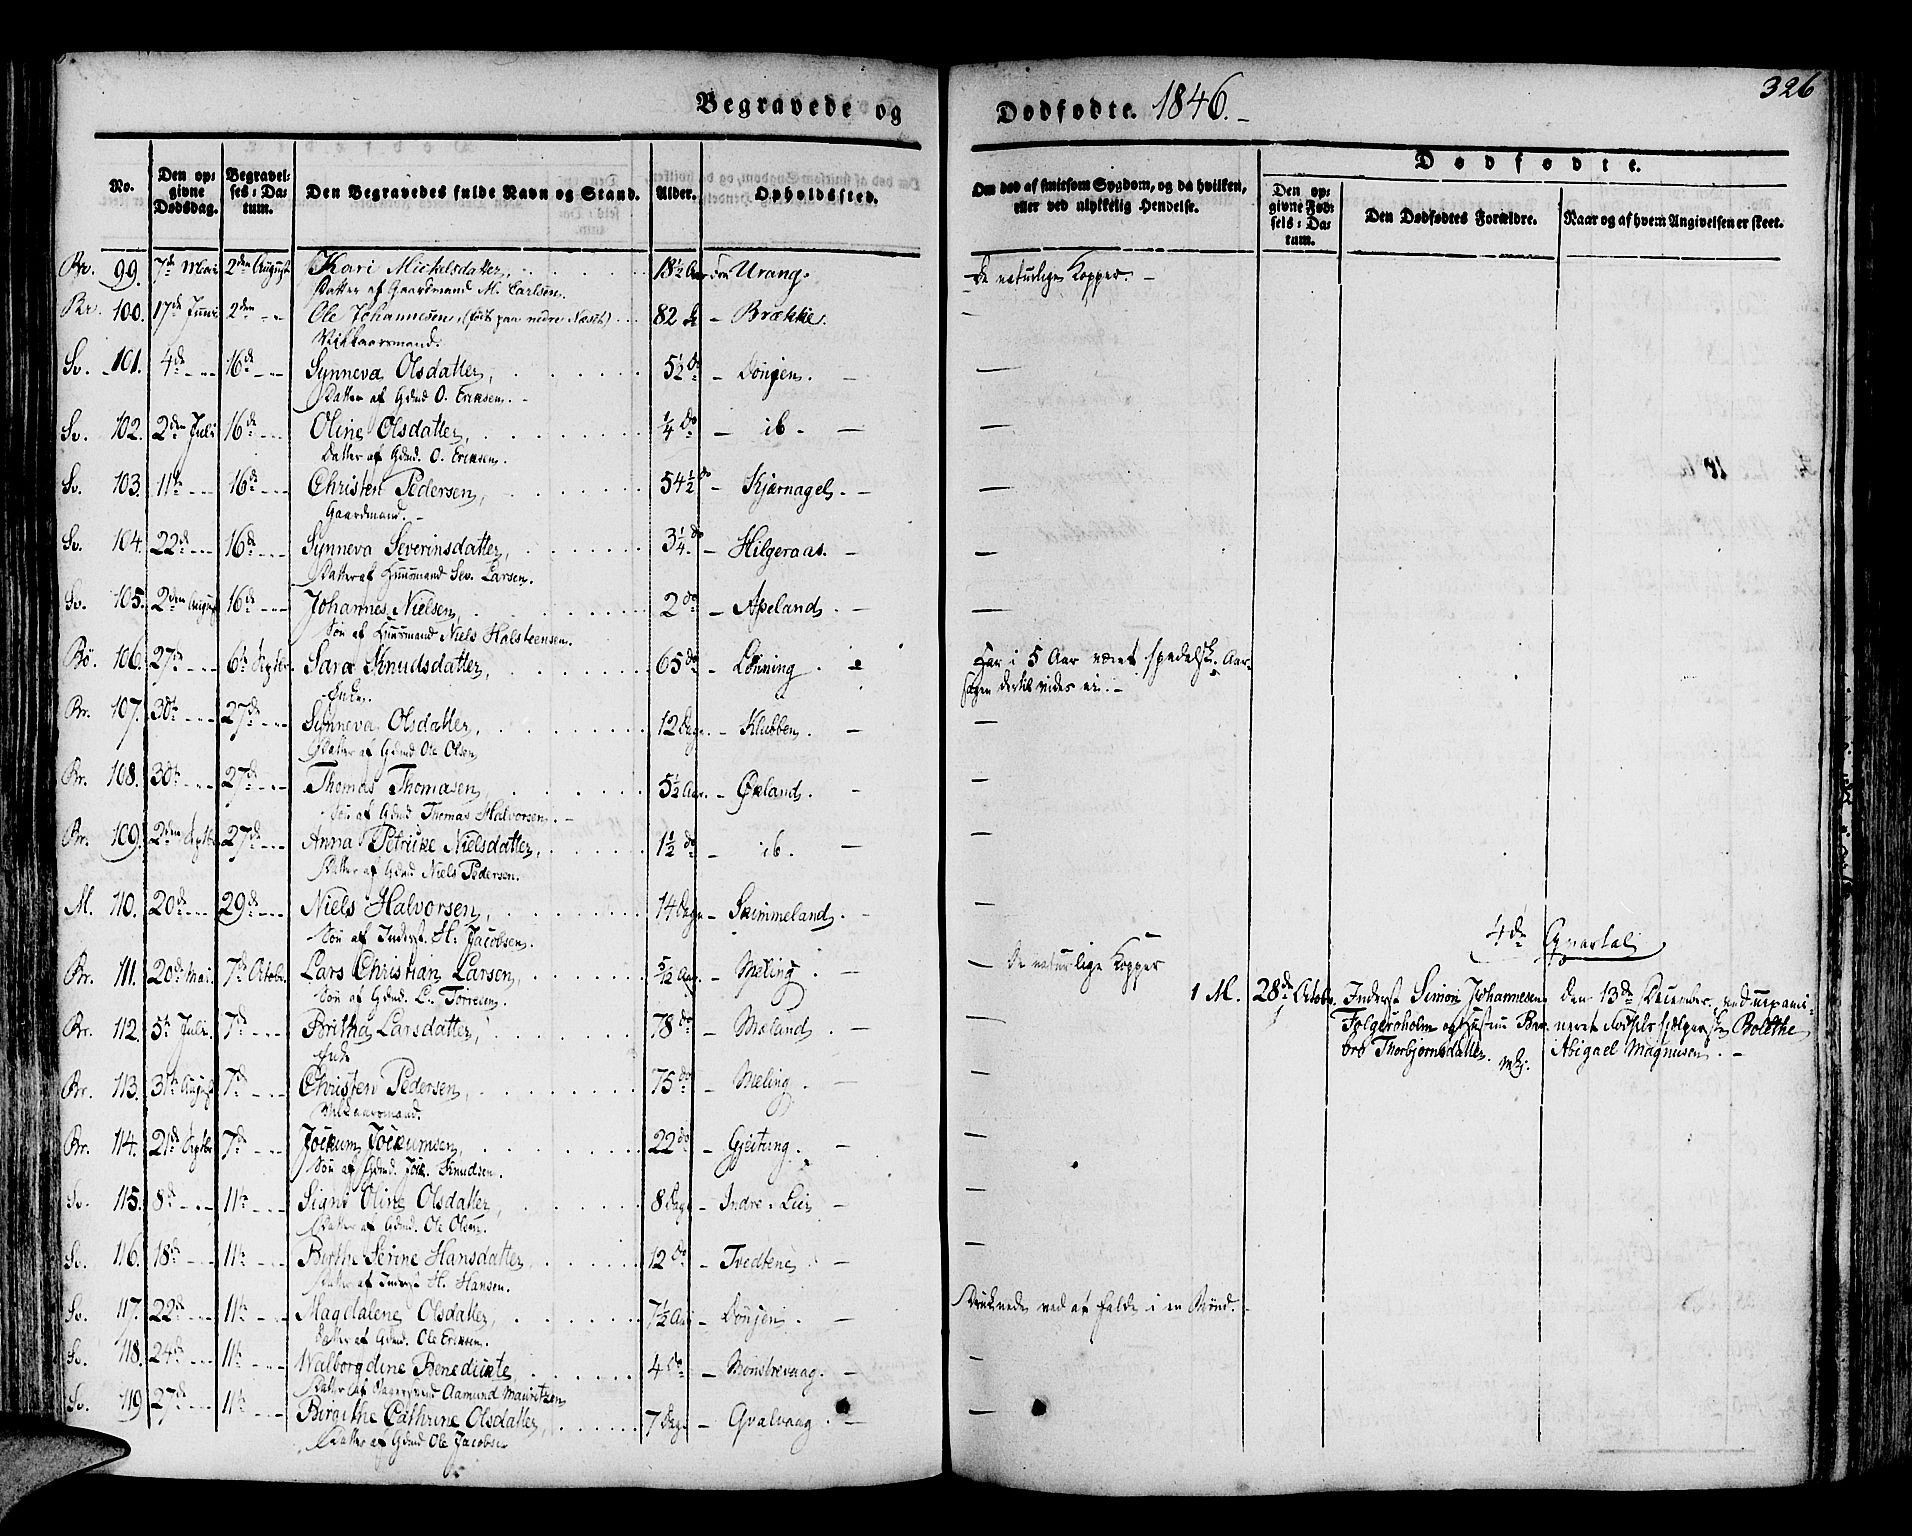 Begravede og
Dødfødte. 1846.
326
No.
Den opgivne Dødsdag.
Begravelses-Datum.
Den Begravedes fulde Navn og Stand.
Alder.
Opholdssted.
Om død af smitsom Sygdom, og da hvilken, eller ved ulykkelig Hendelse.
Dødfødte.
Den opgivne Fødsels-Datum.
Den Dødfødtes Forældre.
Naar og af hvem Angivelsen er skeet.
Br. 99. 7de Mai 2den August Kari Mickelsdatter, 18½ Aar Urang. De naturlige Kopper. –
Datter af Gaardmand M. Carlsen.
Br. 100. 17de Juni 2den – Ole Johannesen, (født paa nedre Næsse) 82 do – Brække. –
Vilkaarsmand.
Sv. 101. 4de – 16de – Synneva Olsdatter, 5½ do – Dönjen. – –
Datter af Gdmd O. Eriksen. –
Sv. 102. 2den Juli 16de – Oline Olsdatter, ¼ do – ib – – –
Datter af Gdmd. O. Eriksen.
Sv. 103. 11te – 16de – Christen Pedersen, 54½ do – Kjærnagel. – –
Gaardmand. –
Sv. 104. 22de – 16de – Synneva Severinsdatter, 3¼ do – Hilgeraas. – –
Datter af Huusmand Sev. Larsen.
Sv. 105. 2den August 16de – Johannes Nielsen, 2 do – Apeland. – –
Søn af Huusmand Niels Halsteensen.
Bö. 106. 27de – 6te Septbr. Sara Knudsdatter, 65 do – Lönning. Har i 5 Aar været spedalsk. Aar-
Enke. sagen dertil vides ei. –
Br. 107. 30te – 27de – Synneva Olsdatter, 12 Dage – Klubben. – –
Datter af Gdmd Ole Olsen
Br. 108. 30te – 27de – Thomas Thomasen, 5½ Aar. – Öxland. – –
Søn af Gdmd Thomas Halvorsen. –
Br. 109. 2den Septbr 27de – Anna Petrike Nielsdatter, 1½ do – ib. – –
Datter af Gdmd Niels Pedersen.
M. 110. 20de – 29de – Niels Halvorsen, 14 Dage – Simmeland. – –
Søn af Inderst. H. Jacobsen.
4de Qvartal
Br. 111. 20de Mai. 7de Octobr. Lars Christian Larsen, 5/12 Aar – Mæling. – – De naturlige Kopper
Søn af Gdmd. L. Torresen.
1 M. 28de Octobr. Inderst Simon Johannesen den 13de December, ved uexami-
Folgeröholm og Hustru Ber- neret Fødselshjelperske Bolethe
bro Thorbjørnsdatter. Abigael Magnusen. –
Br. 112. 5te Juli. 7de – Britha Larsdatter, 78 do – Mæland. – –
Enke
Br. 113. 31te August 7de – Christen Pedersen, 75 do – Mæling. – –
Vilkaarsmand.
Br. 114. 21de Septbr 7de – Jockum Jockumsen, 22 do – Gjeitung. – –
Søn af Gdmd. Jock. Knudsen.
Sv. 115. 8de – 11te – Signi Oline Olsdatter, 8 Dage – Indre-Lier – –
Datter af Gdmd. Ole Olsen.
Sv. 116. 18de – 11te – Birthe Serine Hansdatter, 12 do – Tvedtene. – –
Datter af Inderst H. Hansen.
Sv. 117. 22de – 11te – Magdalene Olsdatter, 7½ Aar – Dönjen. – Druknede ved at falde i en Brönd. –
Datter af Gdmd. Ole Eriksen.
Sv. 118. 24de – 11te – Walborgdine Benedicte 4 do – Monstrevaag. – –
Datter af Aamund Mauritzen
Sv. 119 27de – 11te – Birgithe Cathrine Olsdatter, 7 Dage – Qvalvaag. – –
Datter af Gdmd Ole Jacobsen